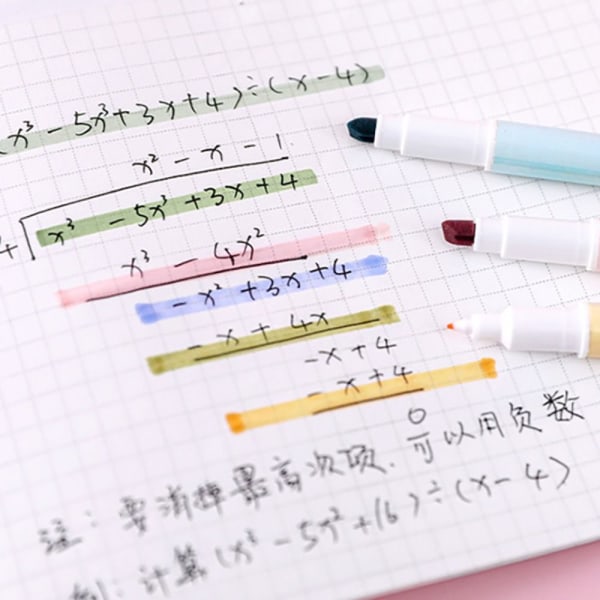 (x³ - 5x³ + 3x + 4) ÷ (x - 4)
x² - x - 1
4 x³ - 5x³ + 3x + 4
x³ - 4x²
- x² + 3x + 4
- x + 4x
- x + 4
- x + 4
0
注：要消掉最高次项.可以用负数
例：计算(x³ - 5x² + 16) ÷ (x - 4)